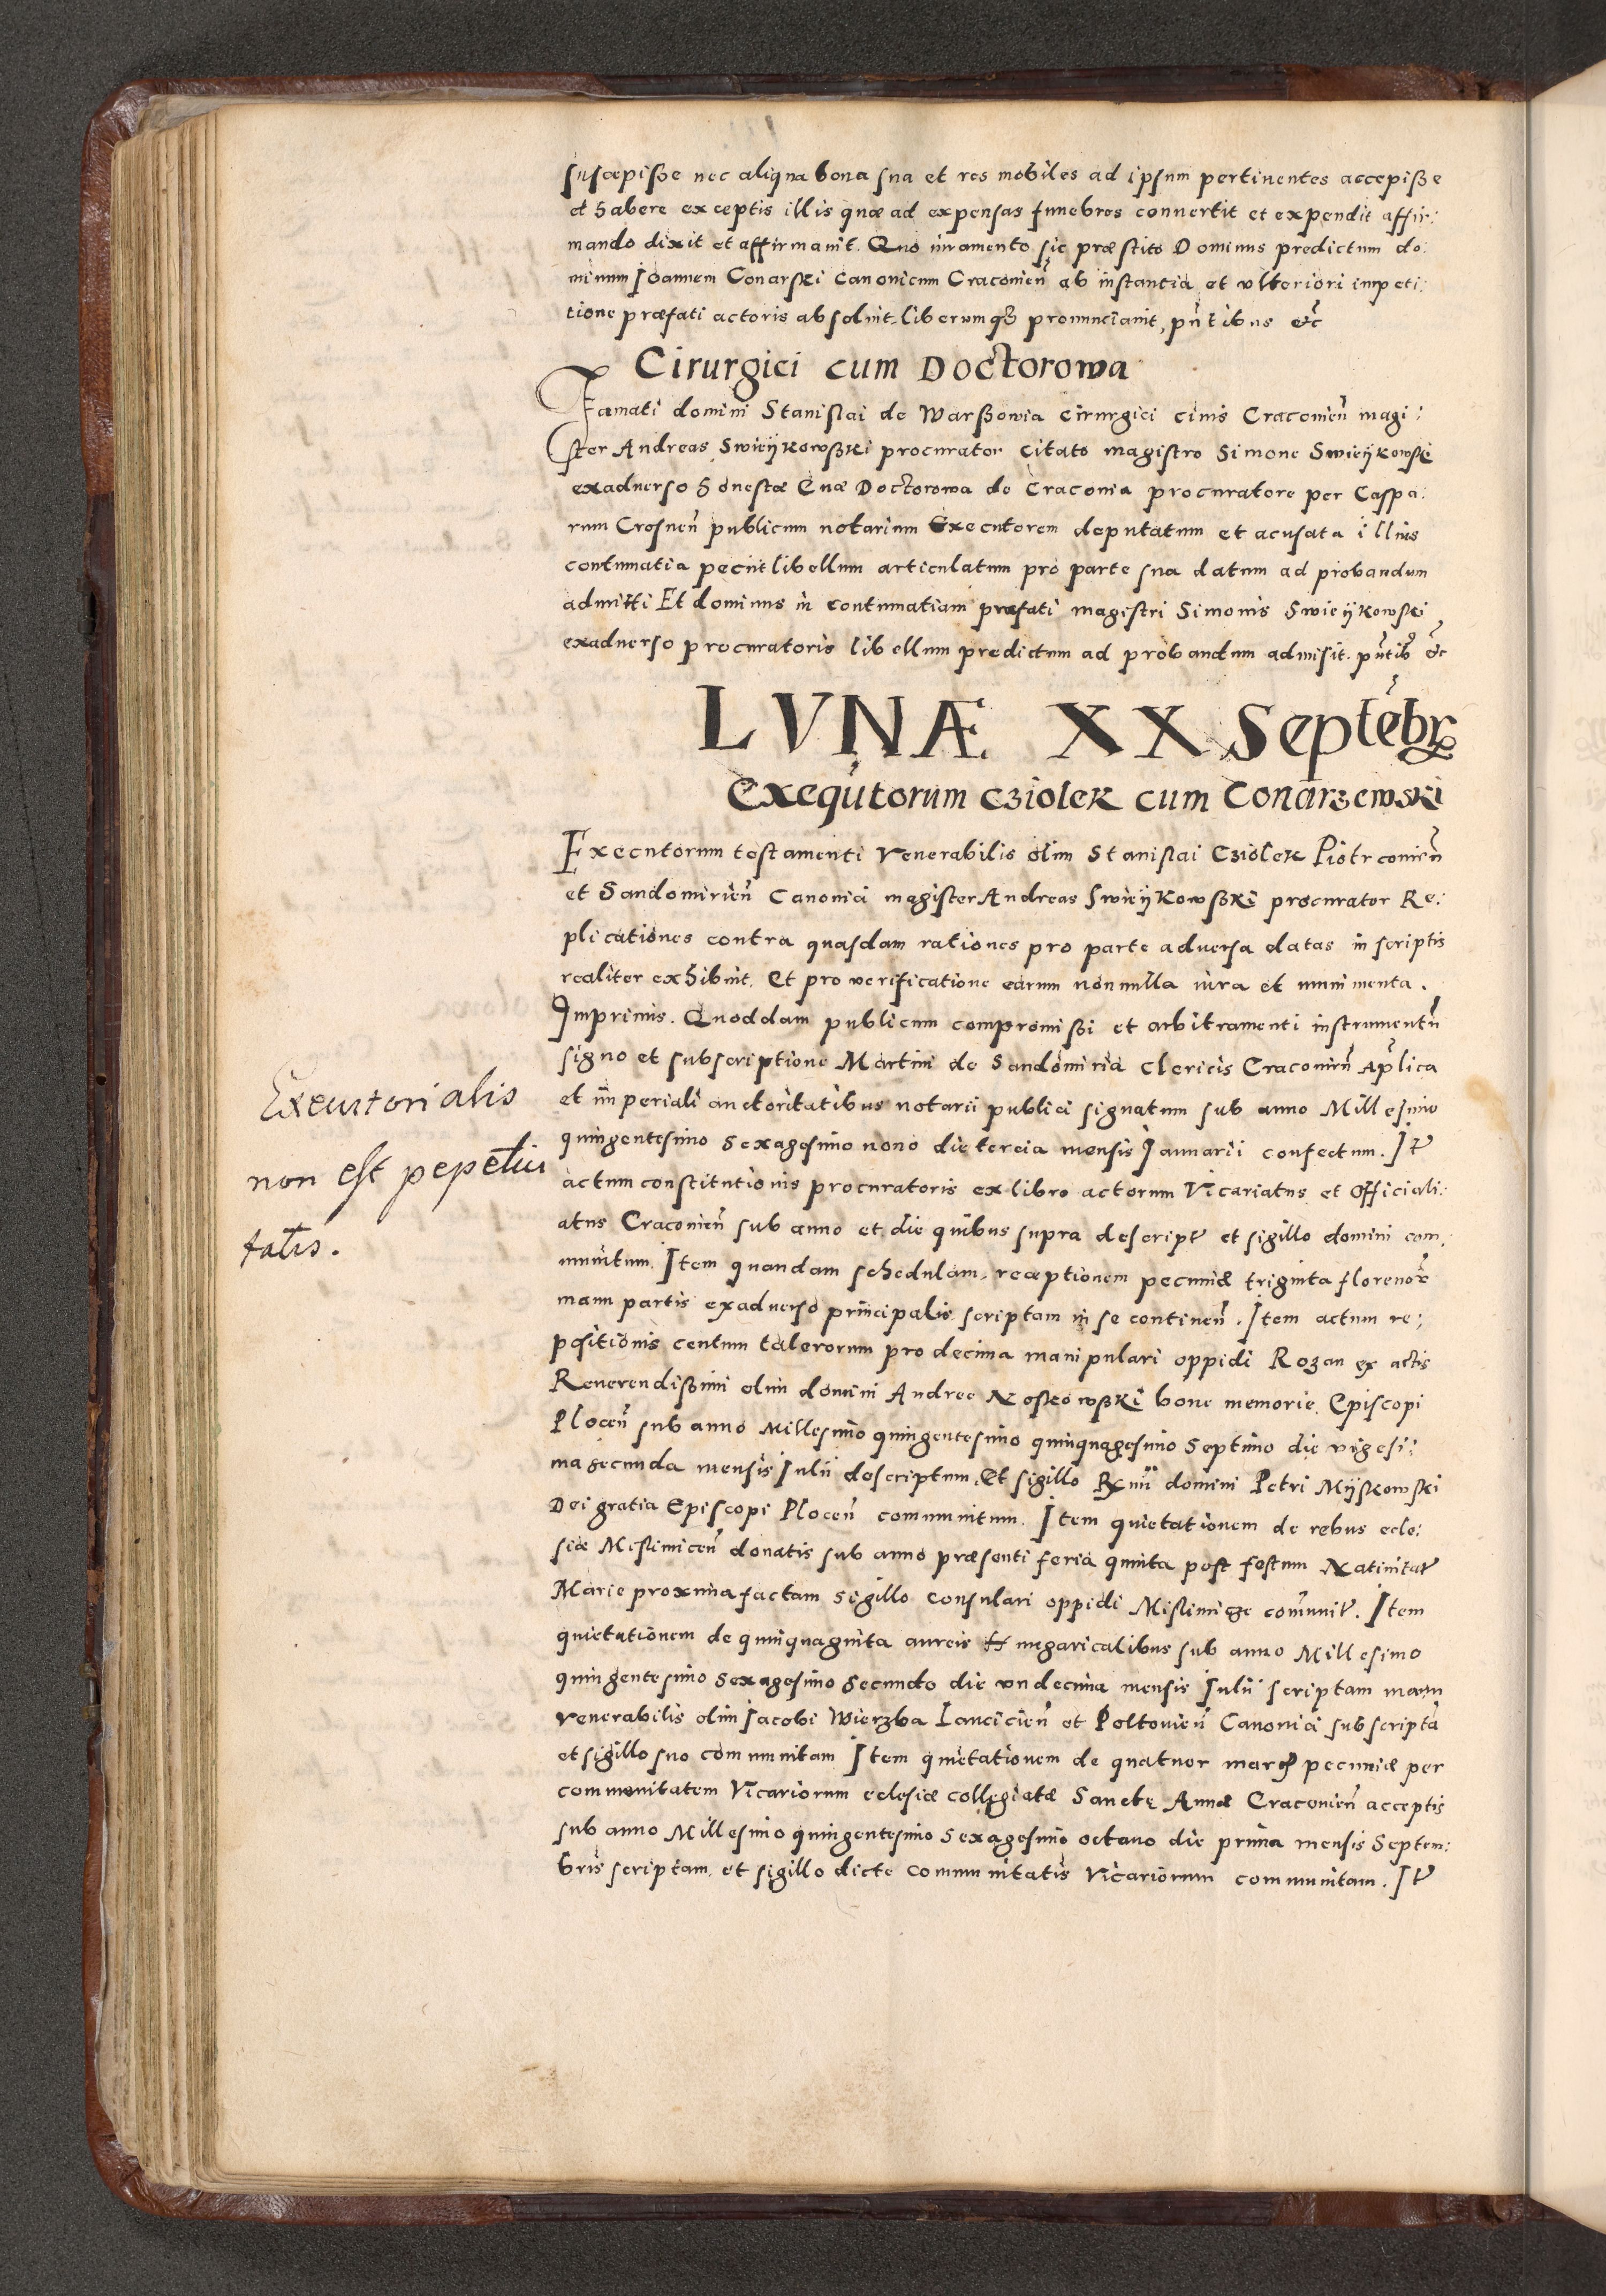 suscæpisse nec aliqua bona sua et res mobiles ad ipsum pertinentes accepisse
et habere exceptis illis quæ ad expensas funebres conuertit et expendit affir:
mando dixit et affirmauit. Quo iuramento sic præstito Dominus predictum do:
minum Joannem Conarski Canonicum Craconień ab instantia et vlteriori impeti:
tione præfati actoris absoluit liberumq3 pronunciauit, pñtibus etć
Cirurgici cum Doctorowa
Famati domini Stanislai de Warssowia Cirurgici ciuis Craconień magi:
ster Andreas Swieÿkowsski procurator citato magistro Simone Swieÿkowski
exaduerso honestæ Euæ Doctorowa de Craconia procuratore per Caspa:
rum Crosneń publicum notarium Executorem deputatum et acusata illius
contumatia peciit libellum articulatum pro parte sua datum ad probandum
admitti Et dominus in contumatiam præfati magistri Simonis Swieÿkowski
exaduerso procuratoris libellum predictum ad probandum admisit. pñtib9 etć
LVNÆ XX Septēbr
Exequtorum Cziolek cum Conarzewski
Executorum testamenti Venerabilis olim Stanislai Cziolek Piotrconień
et Sandomirień Canonici magister Andreas Swieÿkowsski procurator Re:
plicationes contra quasdam rationes pro parte aduersa datas in scriptis
realiter exhibuit. Et pro verificatione earum nonnulla iura et munimenta.
Imprimis. Quoddam publicum compromissi et arbitramenti instrumentū
signo et subscriptione Martini de Sandomiria Clericis Craconień Aplica
et imperiali auctoritatibus notarii publici signatum sub anno Millesimo
quingentesimo sexagesimo nono die tercia mensis Januarii confectum. It
actum constitutionis procuratoris ex libro actorum Vicariatus et Officiali:
atus Craconień sub anno et die quibus supra descript et sigillo domini com:
munitum. Item quandam schedulam, receptionem pecuniæ triginta florenor
manu partis exaduerso principalis scriptam in se contineń. Item actum re:
positionis centum talerorum pro decima manipulari oppidi Rozan ex actis
Reuerendissimi olim domini Andree Noskowsski bone memorie. Episcopi
Ploceń sub anno Millesimo quingentesimo quinquagesimo septimo die vigesi:
ma secunda mensis Julii descriptum. Et sigillo Rmi domini Petri Mÿskowski
Dei gratia Episcopi Ploceń comunitum. Item quietationem de rebus ecle:
siæ Mislimiceń donatis sub anno præsenti feria quinta post festum Natiuitat
Marie proxima factam sigillo Consulari oppidi Mislimicze comunit. Item
quietationem de quinquaginta aureis Hungaricalibus sub anno Millesimo
quingentesimo sexagesimo secundo die vndecima mensis Julii scriptam manu
Venerabilis olim Jacobi Wierzba Lancicień et Poltouień Canonici subscripta
et sigillo suo communitam Item quietationem de quatuor march pecuniæ per
communitatem Vicariorum eclesiæ collegiatæ Sanctę Annæ Craconień acceptis
sub anno Millesimo quingentesimo sexagesimo octauo die prima mensis Septem:
bris scriptam, et sigillo dicte communitatis Vicariorum communitam. It
Executorialis
non est pepetui
tatis.